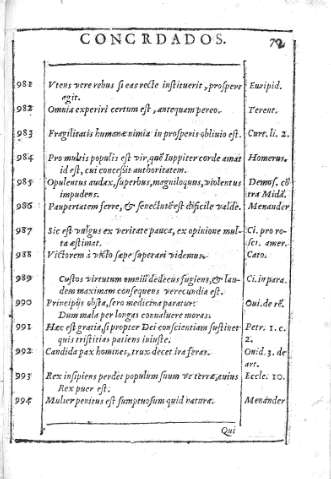 CONCRDADOS. 72
981 Vtens vere rebus si eas recte instituerit, prospere Euripid.
agit.
982 Omnia experiri certum est, antequam pereo. Terent.
983 Fragilitatis humanæ nimia in prosperis obliuio est. Curt. li. 2.
984 Pro multis populis est vir, quẽ Iuppiter corde amat Homerus.
id est, cui concessit authoritatem.
985 Opulentus audax, superbus, magniloquus, violentus Demos. cõ
impudens. tra Midã.
986 Paupertatem ferre, & senectutẽ est difficile valde. Menander
987 Sic est vulgus ex veritate pauca, ex opinione mul- Ci. pro ro-
ta æstimat. sci. amer.
988 Victorem à victo sæpe superari videmus. Cato.
989 Custos virtutum omniũ dedecus fugiens, & lau- Ci. in para.
dem maximam consequens verecundia est.
990 Principijs obsta, sero medicina paratur: Oui. de rẽ.
Dum mala per longas conualuere moras.
991 Hæc est gratia, si propter Dei conscientiam sustinet Petr. 1. c.
quis tristitias patiens iniuste. 2.
992 Candida pax homines, trux decet ira feras. Ouid. 3. de
art.
993 Rex insipiens perdet populum suum væ terræ, cuius Eccle. 10.
Rex puer est.
994 Mulier penitus est sumptuosum quid naturæ. Menander
Qui